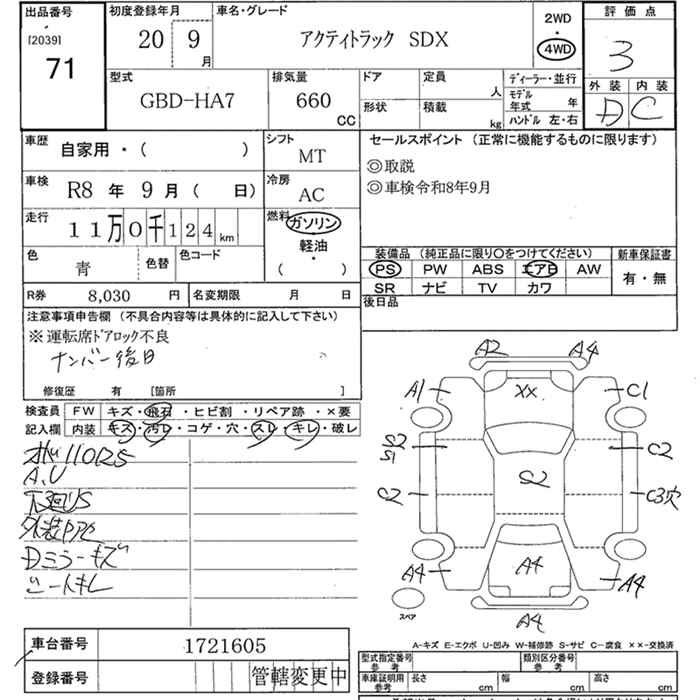 出品番号 初度登録年月 車名・グレード 2WD 評価点
[2039] 71 20 9月 アクティトラック SDX 4WD 3
型式 排気量 ドア 定員 ディーラー・並行 外装 内装
GBD-HA7 660 CC 形状 積載 人 kg モデル年式 年 ハンドル 左・右 D C
車歴 自家用・( ) シフト MT
セールスポイント (正常に機能するものに限ります)
◎取説
◎車検令和8年9月
車検 R8 年 9 月 ( 日) 冷房 AC
走行 11万0千124km 燃料 ガソリン
軽油・
( )
色 青 色替 色コード
装備品 (純正品に限り○をつけてください) 新車保証書
PS PW ABS エアB AW 有・無
SR ナビ TV カワ
R券 8,030 円 名変期限 月 日
後日品
注意事項申告欄 (不具合内容等は具体的に記入して下さい)
※運転席ドアロック不良
ナンバー後日
修復歴 有 [箇所 ]
検査員 FW キズ・飛石・ヒビ割・リペア跡・×要
記入欄 内装 キズ・汚レ・コゲ・穴・スレ・キレ・破レ
110125
A.U
下廻US
Dミラーキズ
シートキレ
A2 A4
A1 XX C1
S2 S1 C2
C2 S2 C3穴
A4 A4 A4
A4
スペア
A-キズ E-エクボ U-凹み W-補修跡 S-サビ C-腐食 ××-交換済
車台番号 1721605
登録番号 管轄変更中
型式指定番号 参考 類別区分番号 参考
車庫証明用 参考 長さ cm 幅 cm 高さ cm